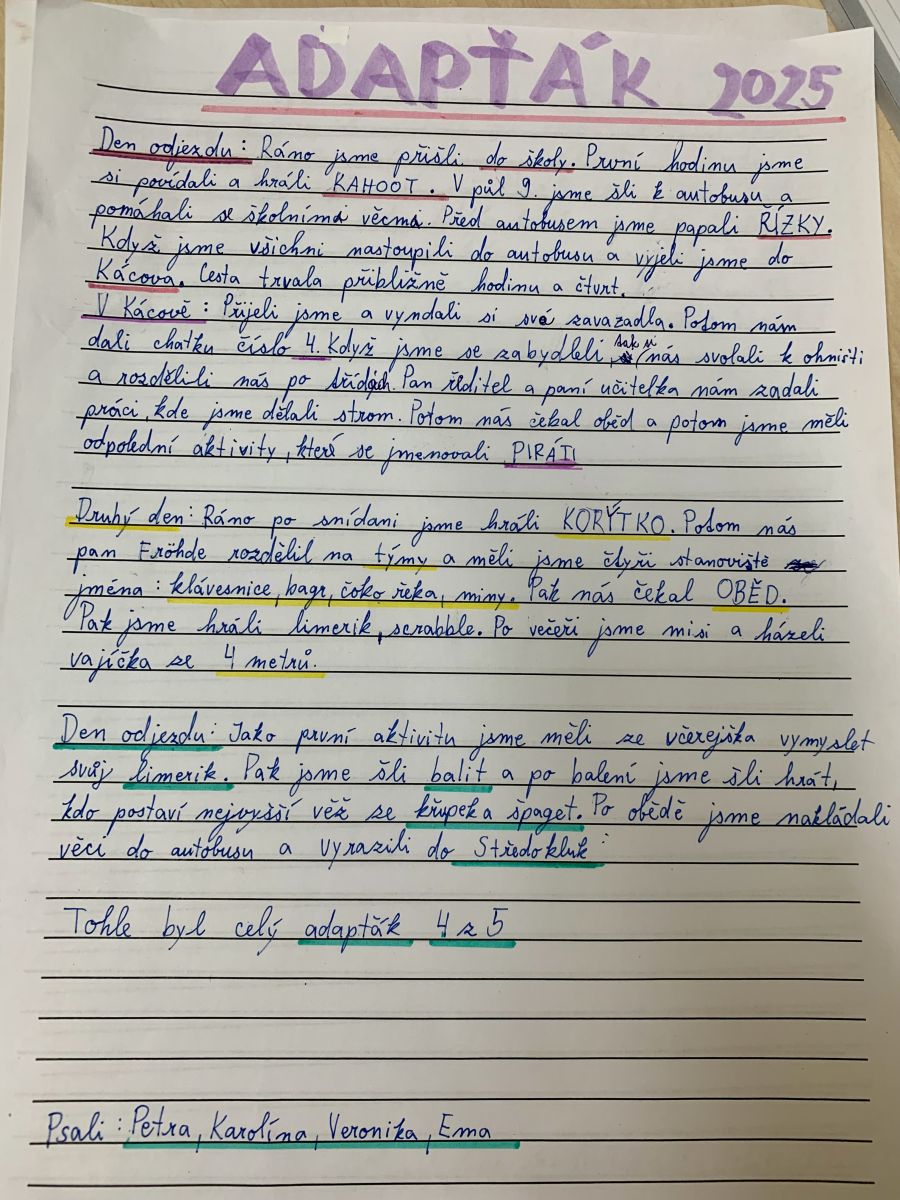 ADAPŤÁK 2025
Den odjezdu: Ráno jsme přišli do školy. První hodinu jsme
si povídali a hráli KAHOOT. V půl 9. jsme šli k autobusu a
pomáhali se školníma věcma. Před autobusem jsme papali ŘÍZKY.
Když jsme všichni nastoupili do autobusu a vyjeli jsme do
Kácova. Cesta trvala přibližně hodinu a čtvrt.
V Kácově: Přijeli jsme a vyndali si své zavazadla. Potom nám
dali chatku číslo 4. Když jsme se zabydleli, tak si nás svolali k ohništi
a rozdělili nás po třídách. Pan ředitel a paní učitelka nám zadali
práci, kde jsme dělali strom. Potom nás čekal oběd a potom jsme měli
odpolední aktivity, které se jmenovali PIRÁTI
Druhý den: Ráno po snídani jsme hráli KORÝTKO. Potom nás
pan Fröhde rozdělil na týmy a měli jsme čtyři stanoviště
jména: klávesnice, bagr, čoko řeka, miny. Pak nás čekal OBĚD.
Pak jsme hráli limerik, scrabble. Po večeři jsme misi a házeli
vajíčka ze 4 metrů.
Den odjezdu: Jako první aktivitu jsme měli ze včerejška vymyslet
svůj limerik. Pak jsme šli balit a po balení jsme šli hrát,
kdo postaví nejvyšší věž ze křupek a špaget. Po obědě jsme nakládali
věci do autobusu a vyrazili do Středokluk
Tohle byl celý adapťák 4 z 5
Psali: Petra, Karolína, Veronika, Ema